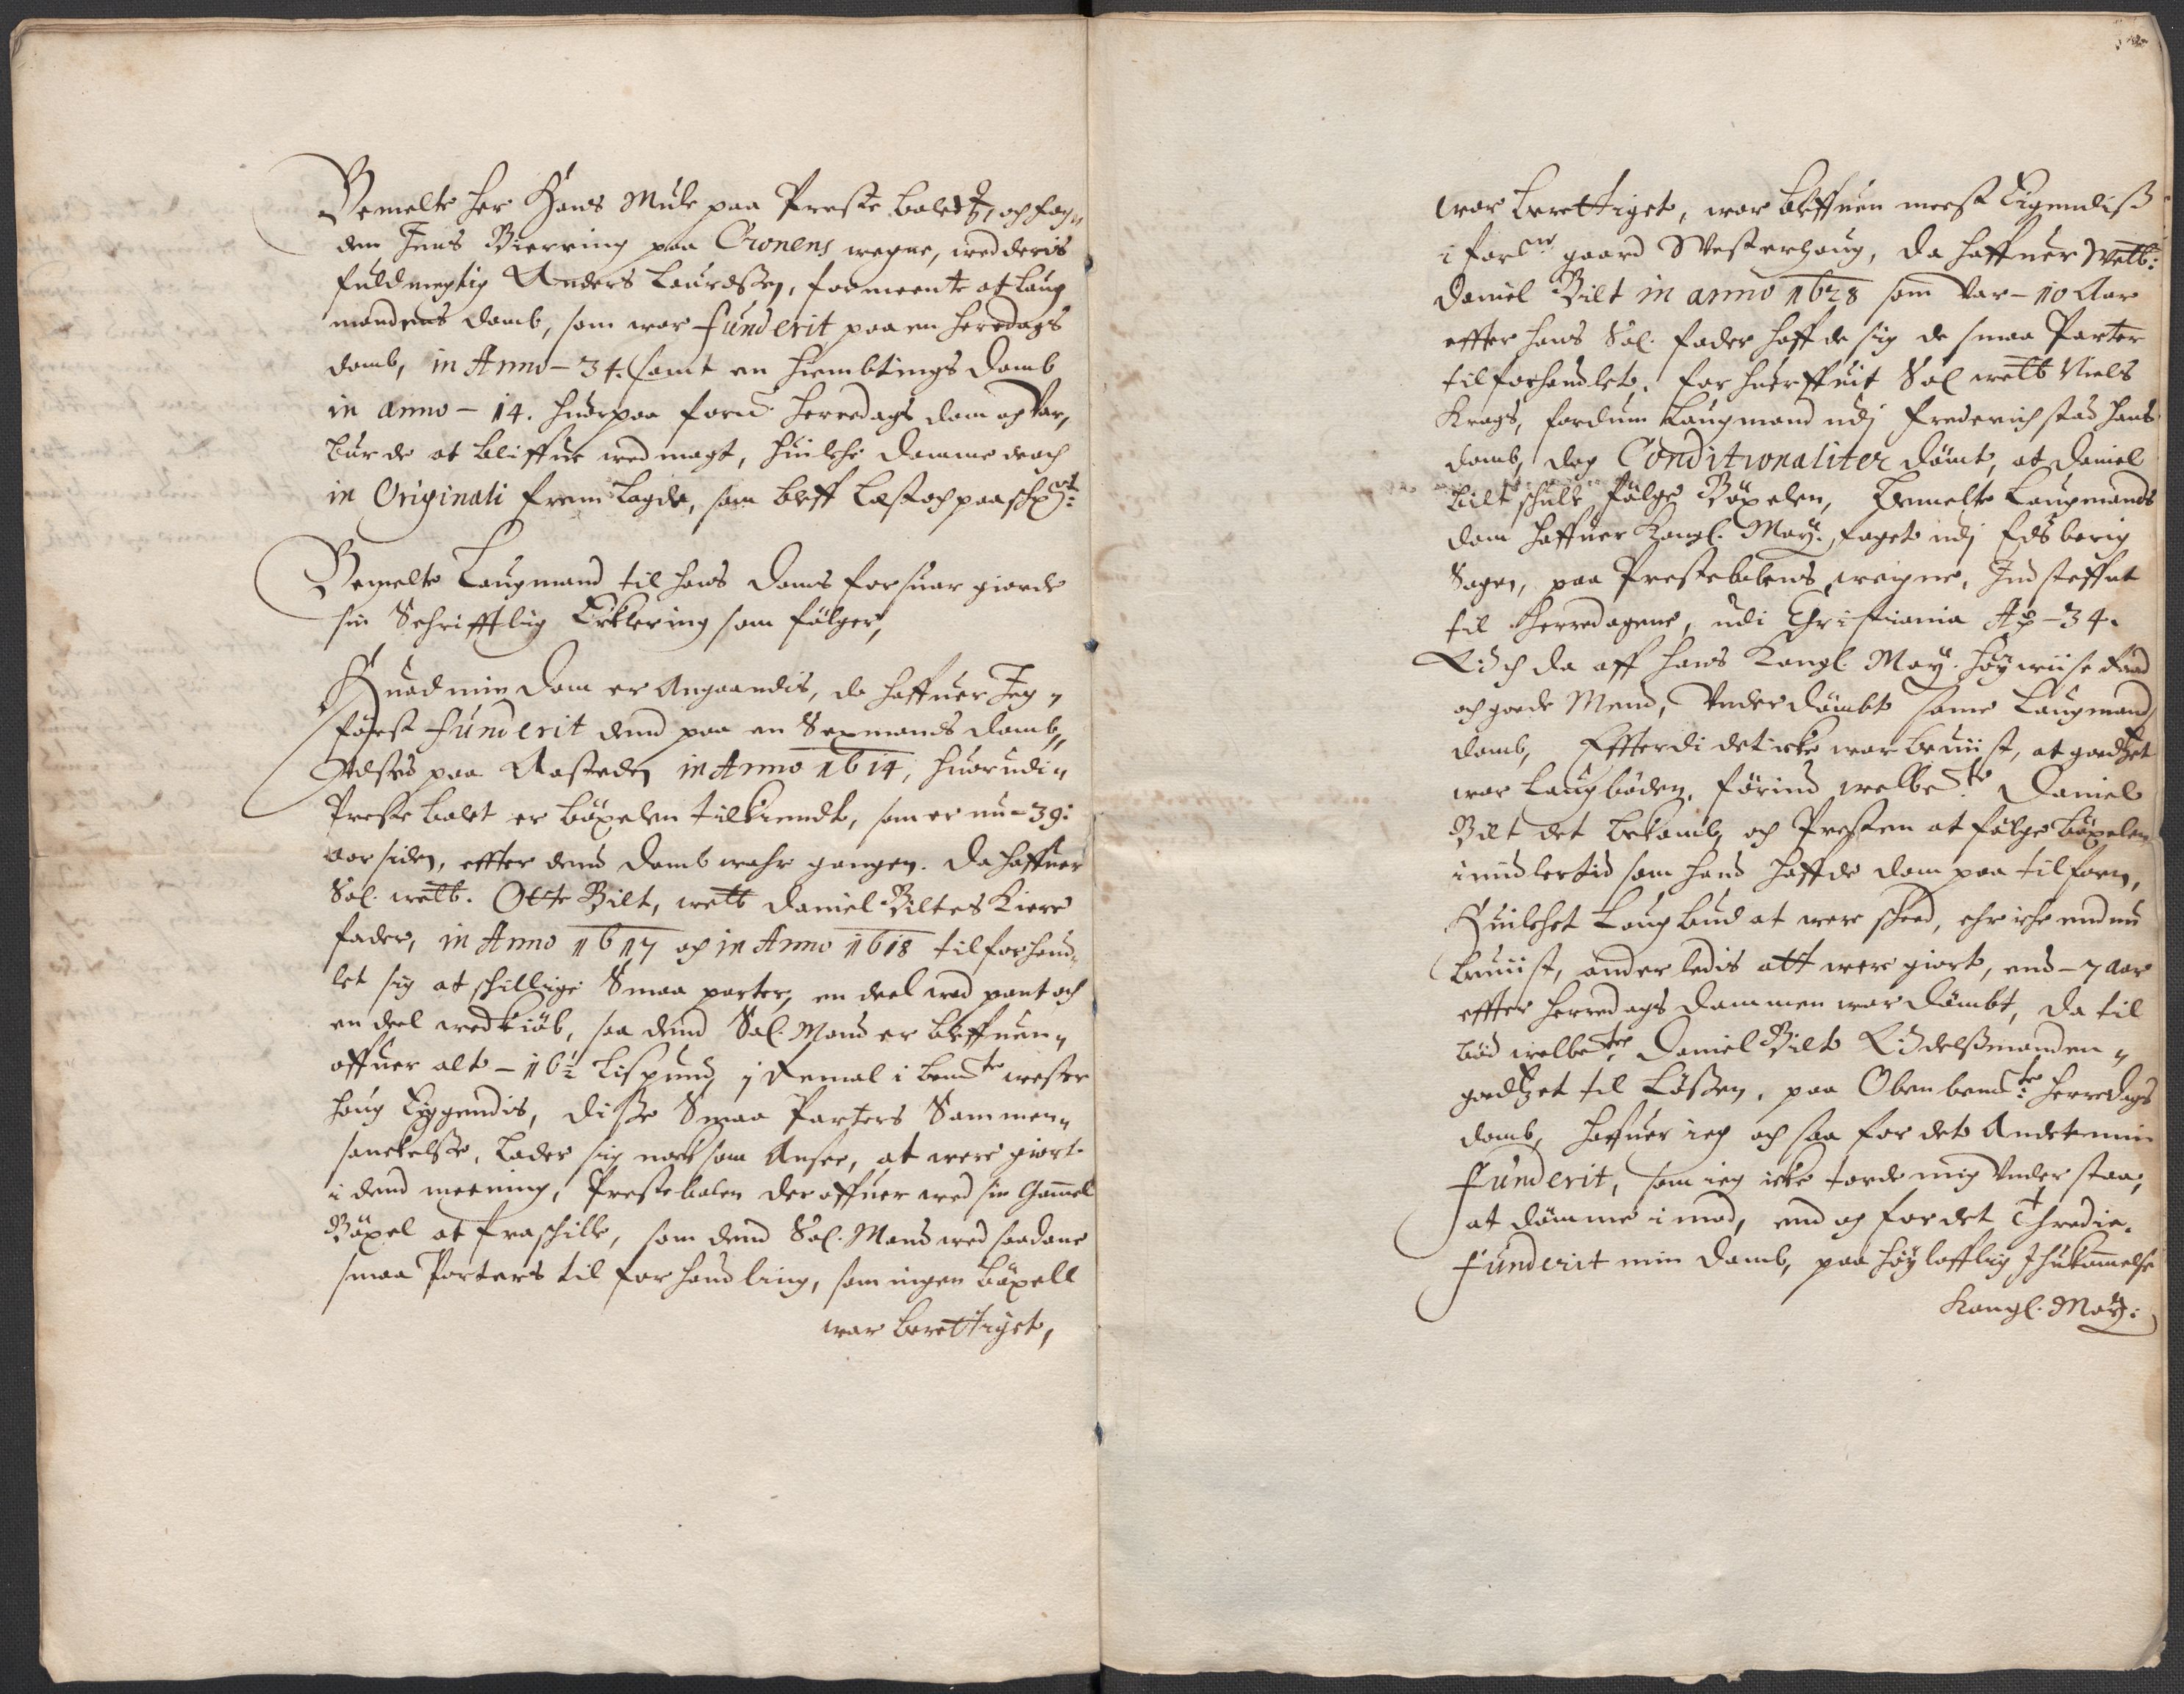 Bemelte her Hans Mule paa Preste bolets, och fog„
den Jens Bierring paa Cronens wegne, wed deris
fuldmegtig Anders Lauridßen, formeente at Laug
mandens domb, som war funderit paa en herredags
domb, in Anno – 34. samt en hiembtings Domb
in anno – 14. huorpaa forne. herredags dom og var,
burde at bliffue wed magt, huilche Domme de och
in Originali frem lagde, som bleff læst och paaschr:
Bemelte Laugmand til hans Doms forsuar giorde
sin Schrifftlig Erklering som følger,
Huad min Dom er Angaandis, da haffuer Jeg„
først funderit dend paa en Sexmands domb,
Adsted paa Aasteden in Anno 1614, huorudi„
Preste bolet er böxelen tilkiendt, som er nu – 39:
aar siden, effter dend domb wahr gangen. Da haffuer
Sal. welb. Otte Bilt, welb Daniel Biltes Kiere
fader, in Anno 1617 og in Anno 1618 tilforhand„
let sig atschillige Smaa parter, en deel wed pant och
en deel wed kiöb, saa dend Sal. Mand er bleffuen„
offuer alt – 16½ Lispund, j Remal i bemte wester
houg Eyggendis, Disse Smaa Parters Sammen„
sanckelße, lader sig nock som Ansee, at were giort
i dend meening, Prestebolen der offuer wed sin Gamel
Böxel at fraschille, som dend Sal. Mand wed saadane
smaa Parters tilforhandling, som ingen böxell
war berettiget,
war berettiget, war bleffuen meest Eigendiß
i forne gaard Westerhoug, da haffuer Welb:
Daniel Bilt in anno 1628 som var – 10 Aar
effter hans Sal. fader haffde sig de smaa Parter
tilforhandlet. for huerffuit Sal welb Niels
Krags, fordum Laugmand udj Frederichstad hans
domb, dog Conditionaliter dömt, at Daniel
Bilt schulle fölge Böxelen, bemelte Laugmands
dom haffuer Kongl. May. foget udj Edsberig
Sogen, paa Prestebolens weigne, Indsteffnt
til Herredagene, udi Christiania Ao – 34.
Er och da aff hans Kongl. May. höywiise Raad
och goede Mend, Underdömbt same Laugmands
domb, Effterdi det icke war beuiist, at goedzet
war Laugböden, förind welbte. Daniel
Bilt det bekomb, och Presten at fölge böxelen
imidlertid som hand haffde dom paa tilforn,
Huilchet Laugbud at were scheed, ehr iche end nu
beuiist, anderledis att were giort, end – 7 Aar
effter herredags Dommen war dömbt, da til
böd welbte Daniel Bilt Lidelßmanden„
goedzet til Lößen, paa Obenbemte: herredags
domb, haffuer ieg och saa for det Andet min
funderit, som ieg icke torde mig understaa,
at dömme imod, end og for det Thredie,
funderit min domb, paa höylofflig Ihukommelse
Kongl. May: